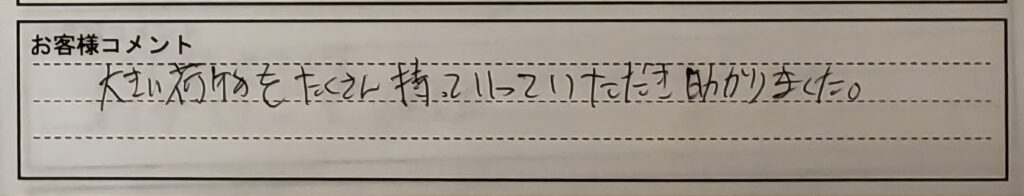 お客様コメント
大きい荷物をたくさん持っていっていただき助かりました。